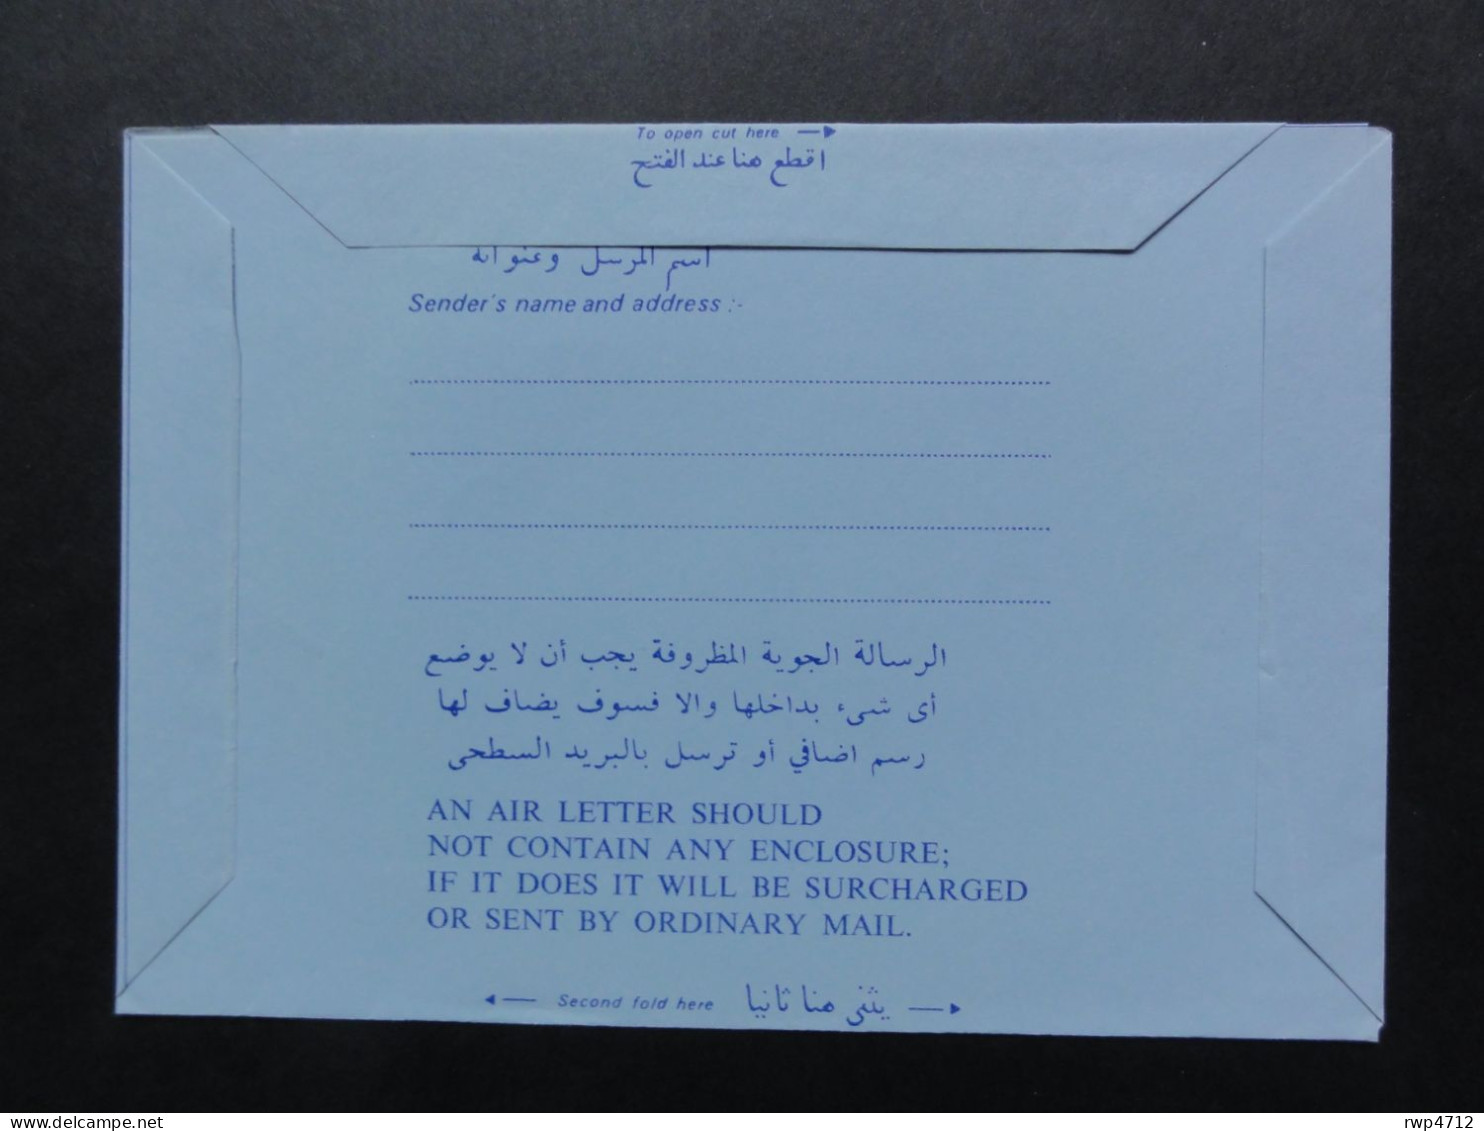 To open cut here
اقطع هنا عند الفتح
اسم المرسل وعنوانه
Sender's name and address :-
الرسالة الجوية المظروفة يجب أن لا يوضع
أى شىء بداخلها والا فسوف يضاف لها
رسم اضافي أو ترسل بالبريد السطحى
AN AIR LETTER SHOULD
NOT CONTAIN ANY ENCLOSURE;
IF IT DOES IT WILL BE SURCHARGED
OR SENT BY ORDINARY MAIL.
Second fold here يثنى هنا ثانيا
rwp4712